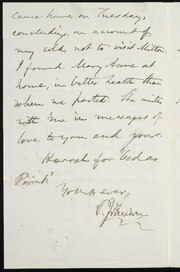 came home on Tuesday,
concluding, on account of
my cold, not to visit Milton.
I found Mary Anne at
home, in better health than
when we parted. She unites
with me in messages of
love to you and yours.
Hurrah for Cedar
Point!
Yours ever,